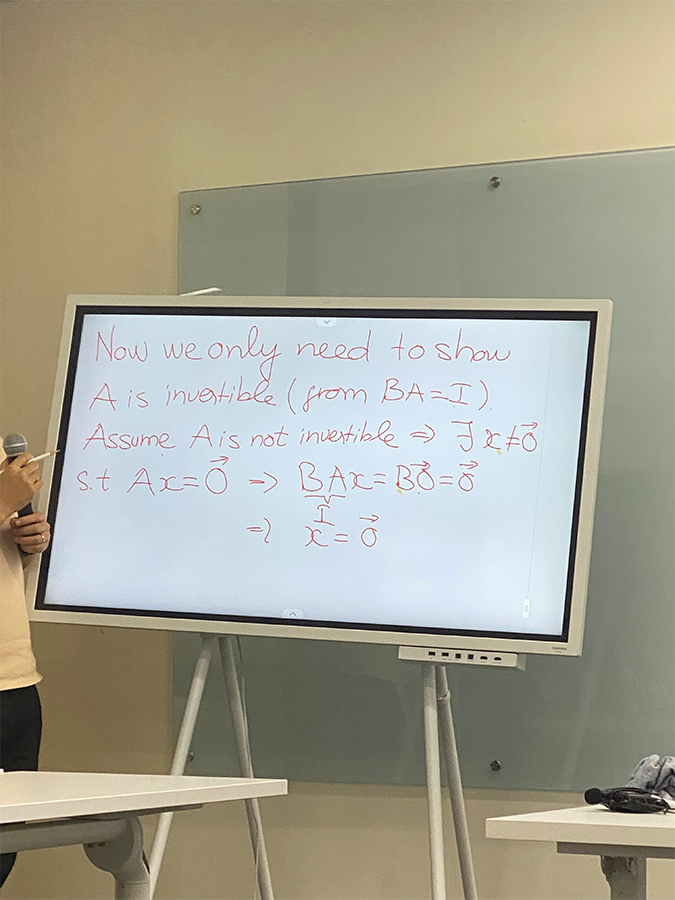 Now we only need to show
A is invertible (from BA = I).
Assume A is not invertible ⇒ ∃ x ≠ 0⃗
s.t Ax = 0⃗ ⇒ BAx = B0⃗ = 0⃗
I
⇒ x = 0⃗
SAMSUNG